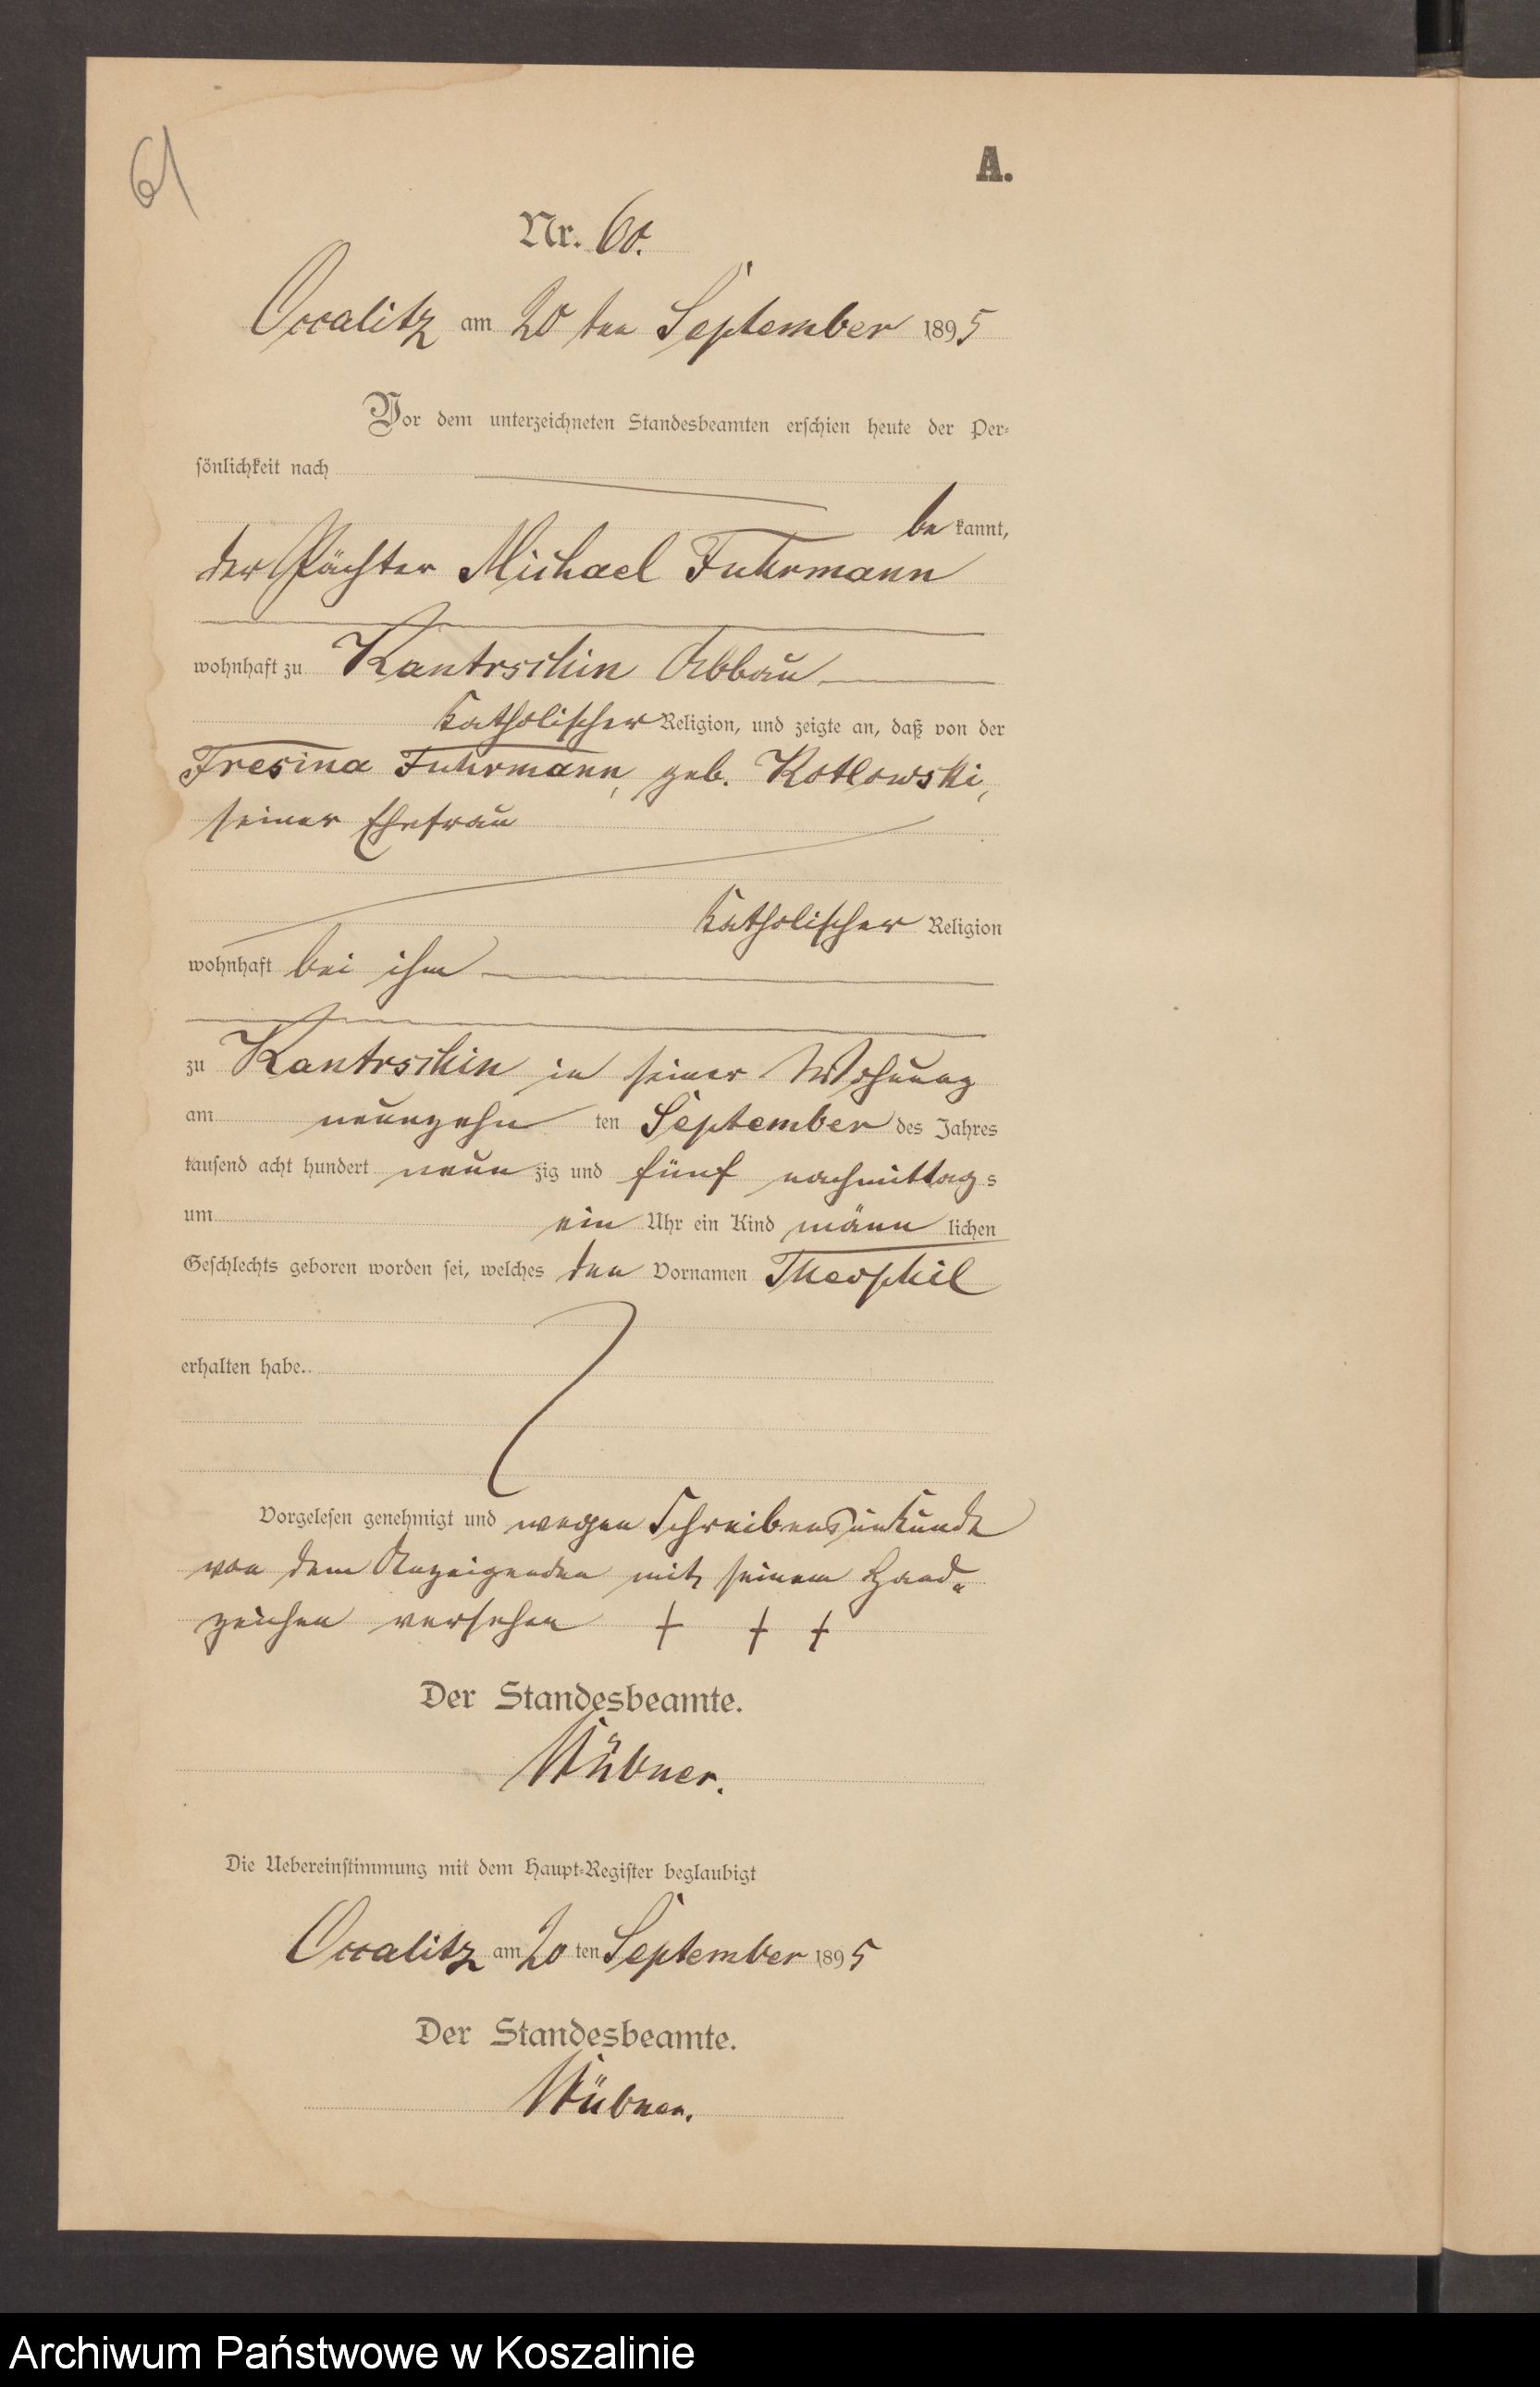 61
A.
Nr. 60.
Occalitz am 20 ten September 1895
Vor dem unterzeichneten Standesbeamten erschien heute der Per-
sönlichkeit nach
be kannt,
der Pächter Michael Fuhrmann
wohnhaft zu Kantrschin Abbau
katholischer Religion, und zeigte an, daß von der
Fresina Fuhrmann, geb. Kotlowski,
seiner Ehefrau
katholischer Religion
wohnhaft bei ihm
zu Kantrschin in seiner Wohnung
am neunzehn ten September des Jahres
tausend acht hundert neun zig und fünf nachmittag s
um ein Uhr ein Kind männ lichen
Geschlechts geboren worden sei, welches den Vornamen Theophil
erhalten habe..
Vorgelesen genehmigt und wegen Schreibensunkunde
von dem Anzeigenden mit seinem Hand-
zeichen versehen + + +
Der Standesbeamte.
Stübner.
Die Uebereinstimmung mit dem Haupt-Register beglaubigt
Occalitz am 20 ten September 1895
Der Standesbeamte.
Stübner.
Archiwum Państwowe w Koszalinie